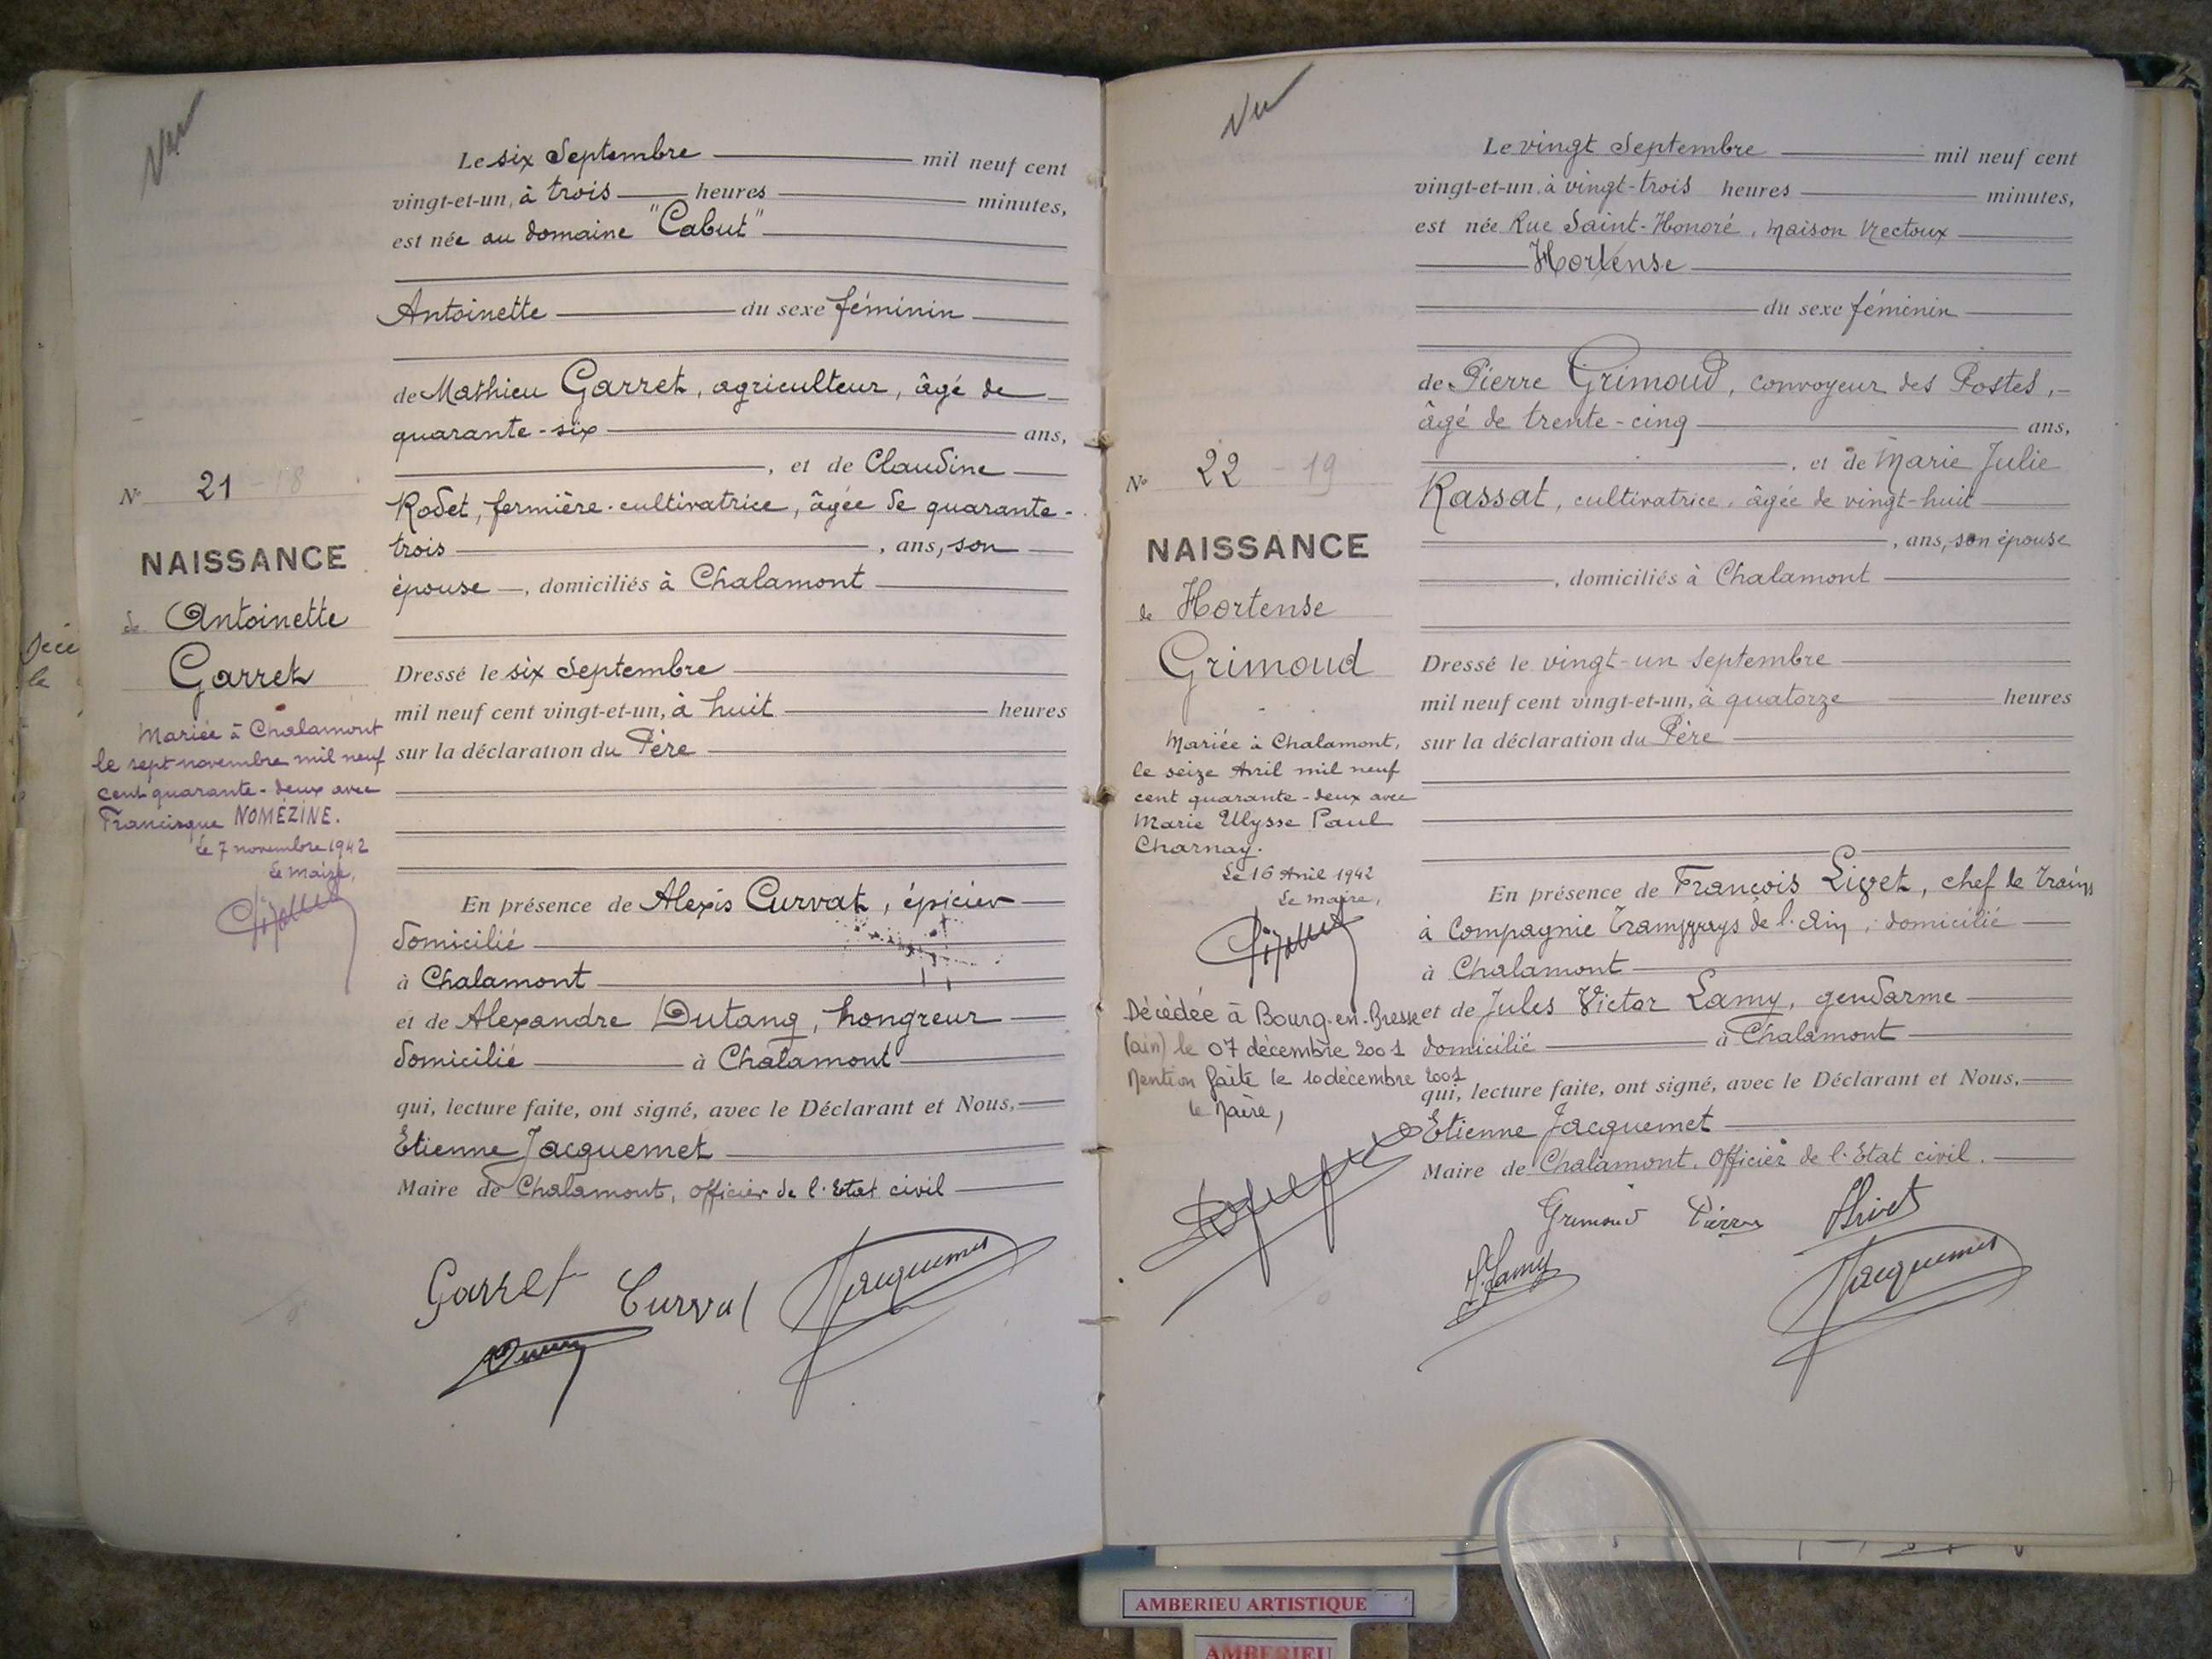 Vu
Le six Septembre mil neuf cent
vingt-et-un, à trois heures minutes,
est née au domaine "Cabut"
Antoinette du sexe féminin
de Mathieu Garret, agriculteur, âgé de
quarante-six ans,
, et de Claudine
Rodet, fermière-cultivatrice, âgée de quarante-
trois , ans, son
épouse , domiciliés à Chalamont
Dressé le six Septembre
mil neuf cent vingt-et-un, à huit heures
sur la déclaration du Père
En présence de Alexis Curvat, épicier
domicilié
à Chalamont
et de Alexandre Dutang, hongreur
domicilié à Chalamont
qui, lecture faite, ont signé, avec le Déclarant et Nous,
Etienne Jacquemet
Maire de Chalamont, officier de l'Etat civil
Garret Curvat Jacquemet
No 21 - 18
NAISSANCE
de Antoinette
Garret
Mariée à Chalamont
le sept novembre mil neuf
cent quarante-deux avec
Francisque NOMÉZINE.
Le 7 novembre 1942
Le maire,
Décé
le
Vu
Le vingt Septembre mil neuf cent
vingt-et-un, à vingt-trois heures minutes,
est née Rue Saint-Honoré, maison Rectoux
Hortense
du sexe féminin
de Pierre Grimoud, convoyeur des Postes,
âgé de trente-cinq ans,
, et de Marie Julie
Rassat, cultivatrice, âgée de vingt-huit
, ans, son épouse
, domiciliés à Chalamont
Dressé le vingt-un septembre
mil neuf cent vingt-et-un, à quatorze heures
sur la déclaration du Père
En présence de François Livet, chef de train
à Compagnie Tramways de l'Ain, domicilié
à Chalamont
et de Jules Victor Lamy, gendarme
domicilié à Chalamont
qui, lecture faite, ont signé, avec le Déclarant et Nous,
Etienne Jacquemet
Maire de Chalamont, Officier de l'Etat civil.
Grimoud Pierre Livet
J. Lamy Jacquemet
No 22 - 19
NAISSANCE
de Hortense
Grimoud
Mariée à Chalamont,
le seize Avril mil neuf
cent quarante-deux avec
Marie Ulysse Paul
Charnay.
Le 16 Avril 1942
Le maire,
Décédée à Bourg-en-Bresse
(ain) le 07 décembre 2001
Mention faite le 10 décembre 2001
le Maire,
AMBERIEU ARTISTIQUE
AMBERIEU